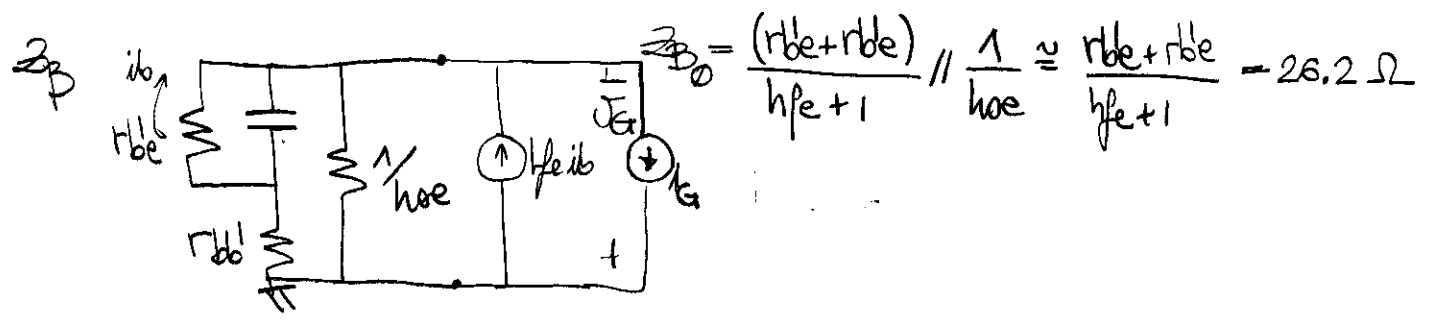 Z_B
ib
rb'e
rbb'
1/hoe
hfe ib
V_G
+
i_G
Z_B0 = (rb'e + rb'e) / (hfe + 1) // 1/hoe ≅ (rb'e + rb'e) / (hfe + 1) = 26.2 Ω